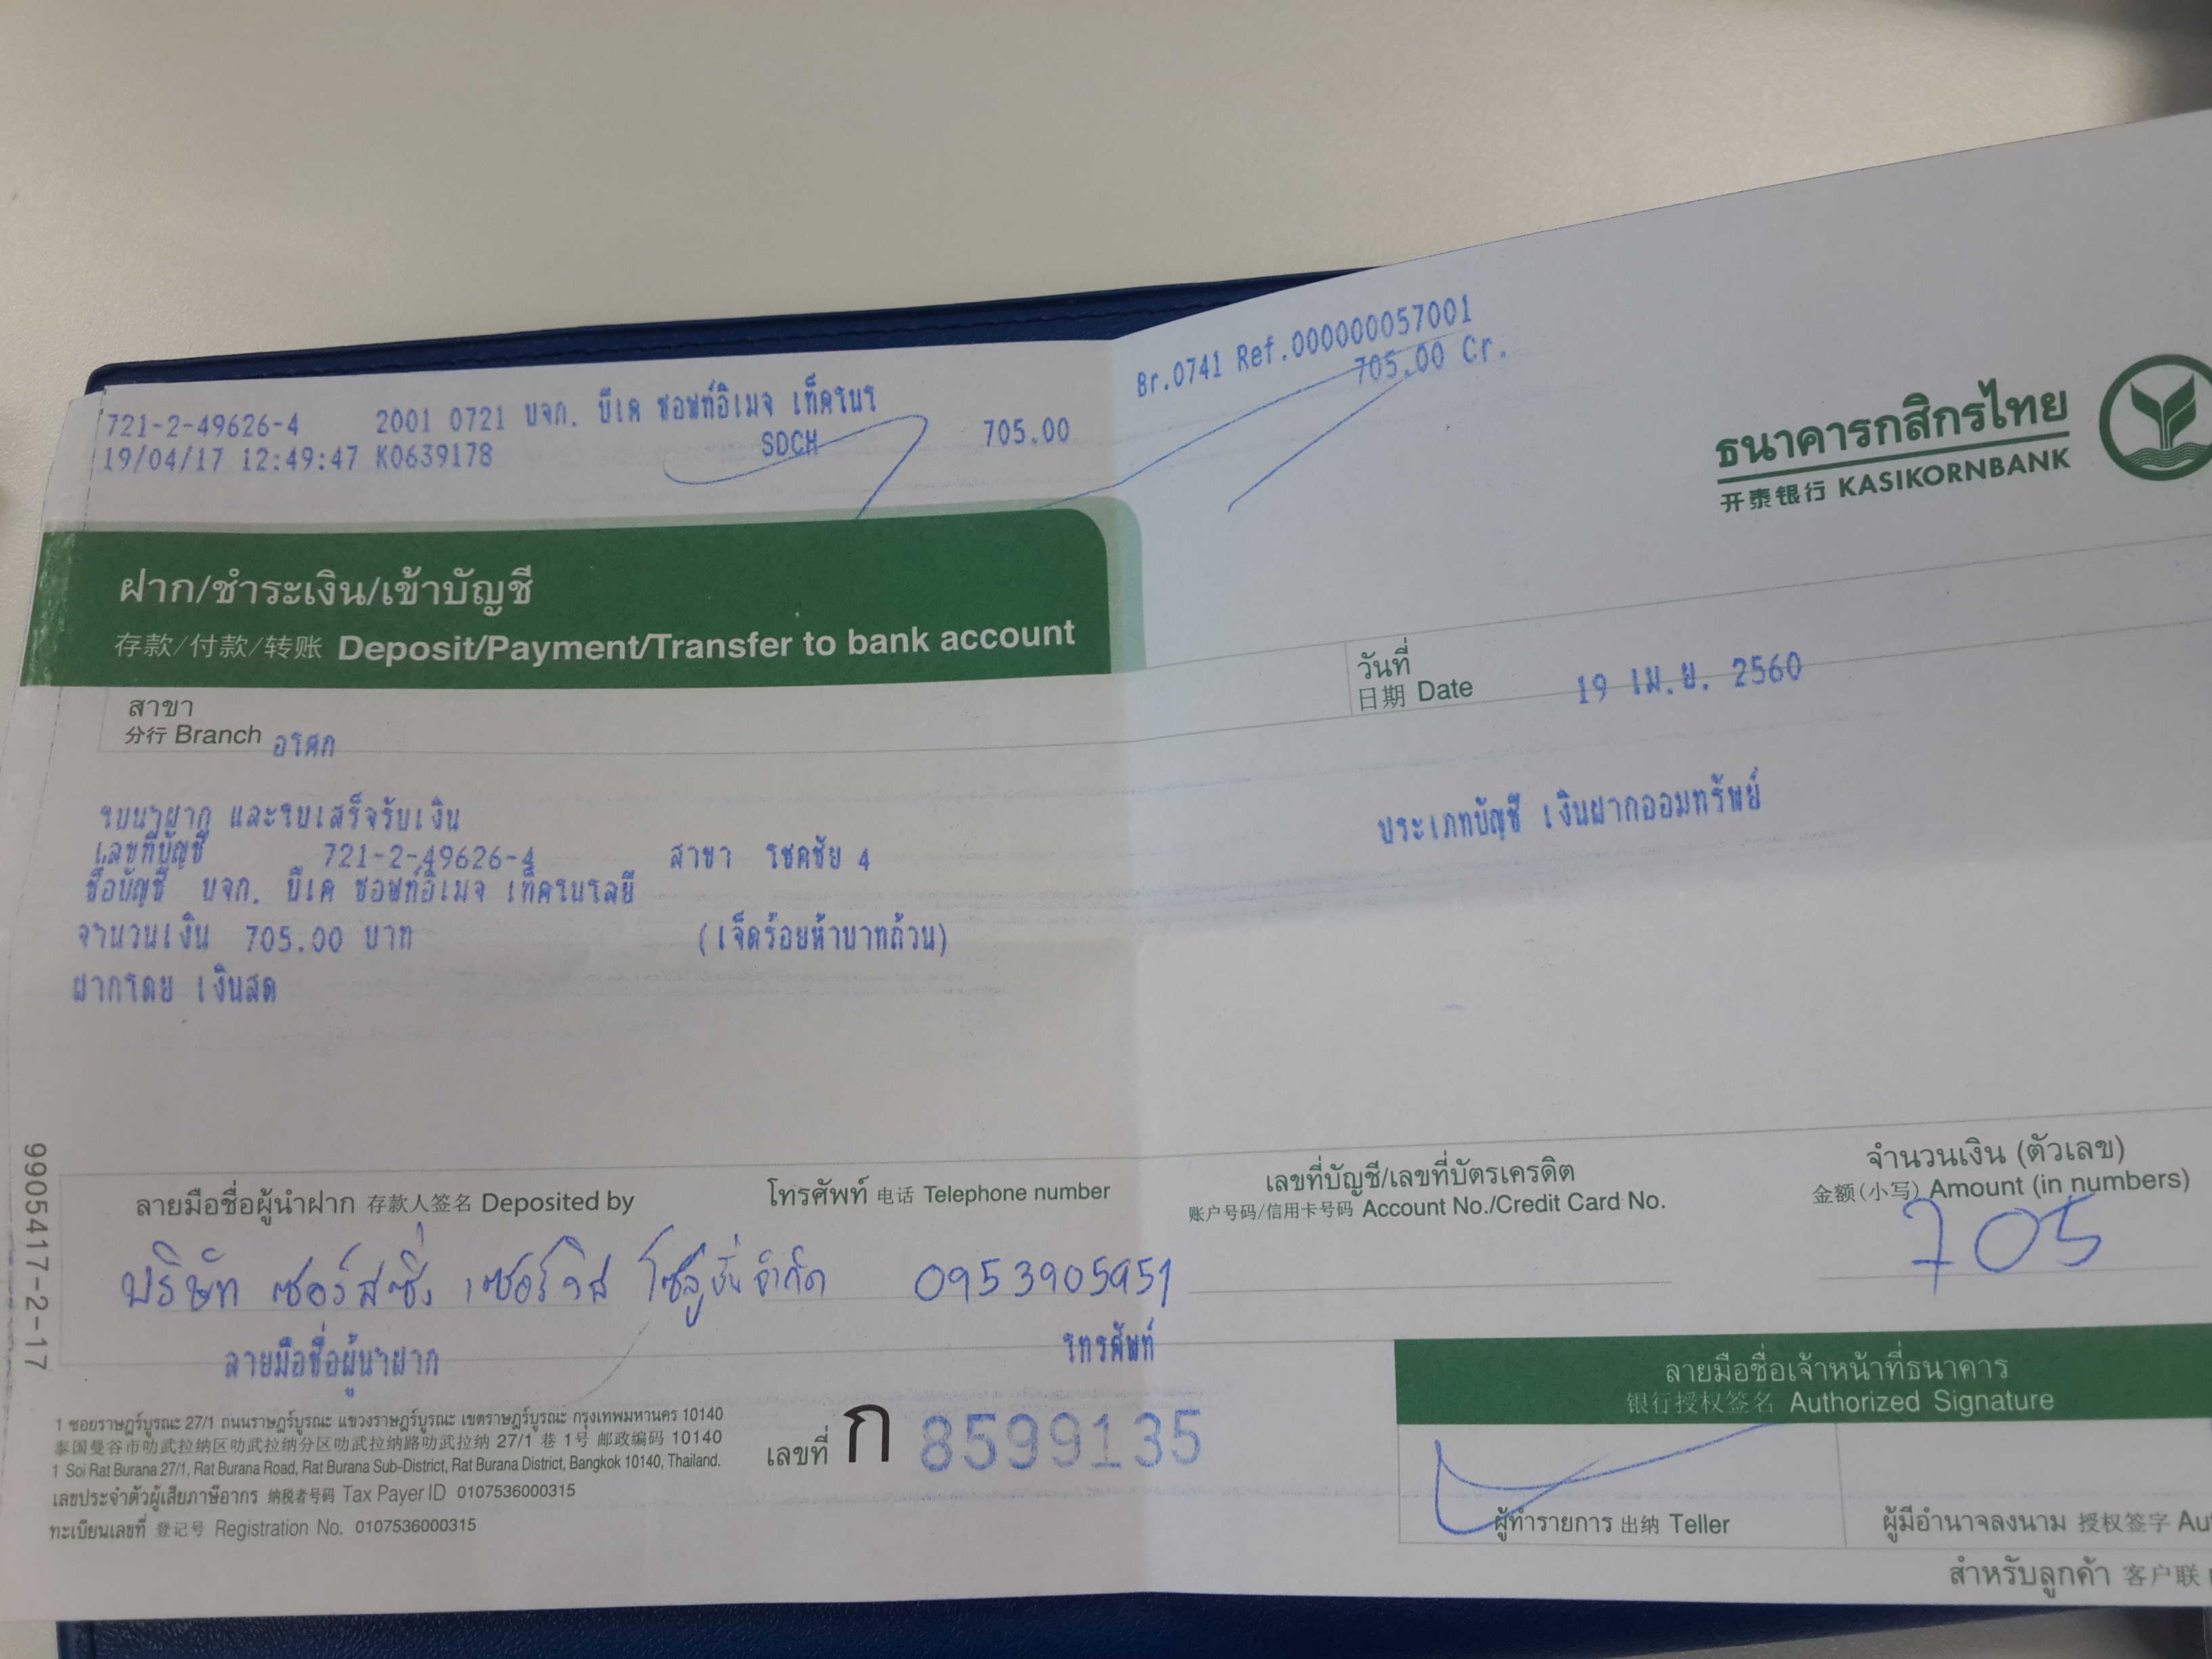 721-2-49626-4 2001 0721 บจก. บีเค ซอฟท์อิเมจ เท็คโนโ
19/04/17 12:49:47 K0639178 SDCH 705.00
Br.0741 Ref.000000057001
705.00 Cr.
ธนาคารกสิกรไทย
开泰银行 KASIKORNBANK
ฝาก/ชำระเงิน/เข้าบัญชี
存款/付款/转账 Deposit/Payment/Transfer to bank account
สาขา
分行 Branch อโศก
วันที่
日期 Date 19 เม.ย. 2560
ใบนำฝาก และใบเสร็จรับเงิน
ประเภทบัญชี เงินฝากออมทรัพย์
เลขที่บัญชี 721-2-49626-4 สาขา โชคชัย 4
ชื่อบัญชี บจก. บีเค ซอฟท์อิเมจ เท็คโนโลยี
จำนวนเงิน 705.00 บาท (เจ็ดร้อยห้าบาทถ้วน)
ฝากโดย เงินสด
9905417-2-17
ลายมือชื่อผู้นำฝาก 存款人签名 Deposited by
โทรศัพท์ 电话 Telephone number
เลขที่บัญชี/เลขที่บัตรเครดิต
账户号码/信用卡号码 Account No./Credit Card No.
จำนวนเงิน (ตัวเลข)
金额(小写) Amount (in numbers)
บริษัท ซอร์สซิ่ง เซอร์วิส โซลูชั่น จำกัด 0953905951
705
ลายมือชื่อผู้นำฝาก โทรศัพท์
1 ซอยราษฎร์บูรณะ 27/1 ถนนราษฎร์บูรณะ แขวงราษฎร์บูรณะ เขตราษฎร์บูรณะ กรุงเทพมหานคร 10140
泰国曼谷市叻武拉纳区叻武拉纳分区叻武拉纳路叻武拉纳 27/1 巷 1号 邮政编码 10140
1 Soi Rat Burana 27/1, Rat Burana Road, Rat Burana Sub-District, Rat Burana District, Bangkok 10140, Thailand.
เลขประจำตัวผู้เสียภาษีอากร 纳税者号码 Tax Payer ID 0107536000315
ทะเบียนเลขที่ 登记号 Registration No. 0107536000315
เลขที่ ก 8599135
ลายมือชื่อเจ้าหน้าที่ธนาคาร
银行授权签名 Authorized Signature
ผู้ทำรายการ 出纳 Teller
ผู้มีอำนาจลงนาม 授权签字 Au
สำหรับลูกค้า 客户联